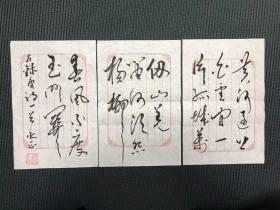 黄河远上
白云间一
片孤城万
仞山羌
笛何须怨
杨柳
春风不度
玉门关
右录唐诗一首 永正